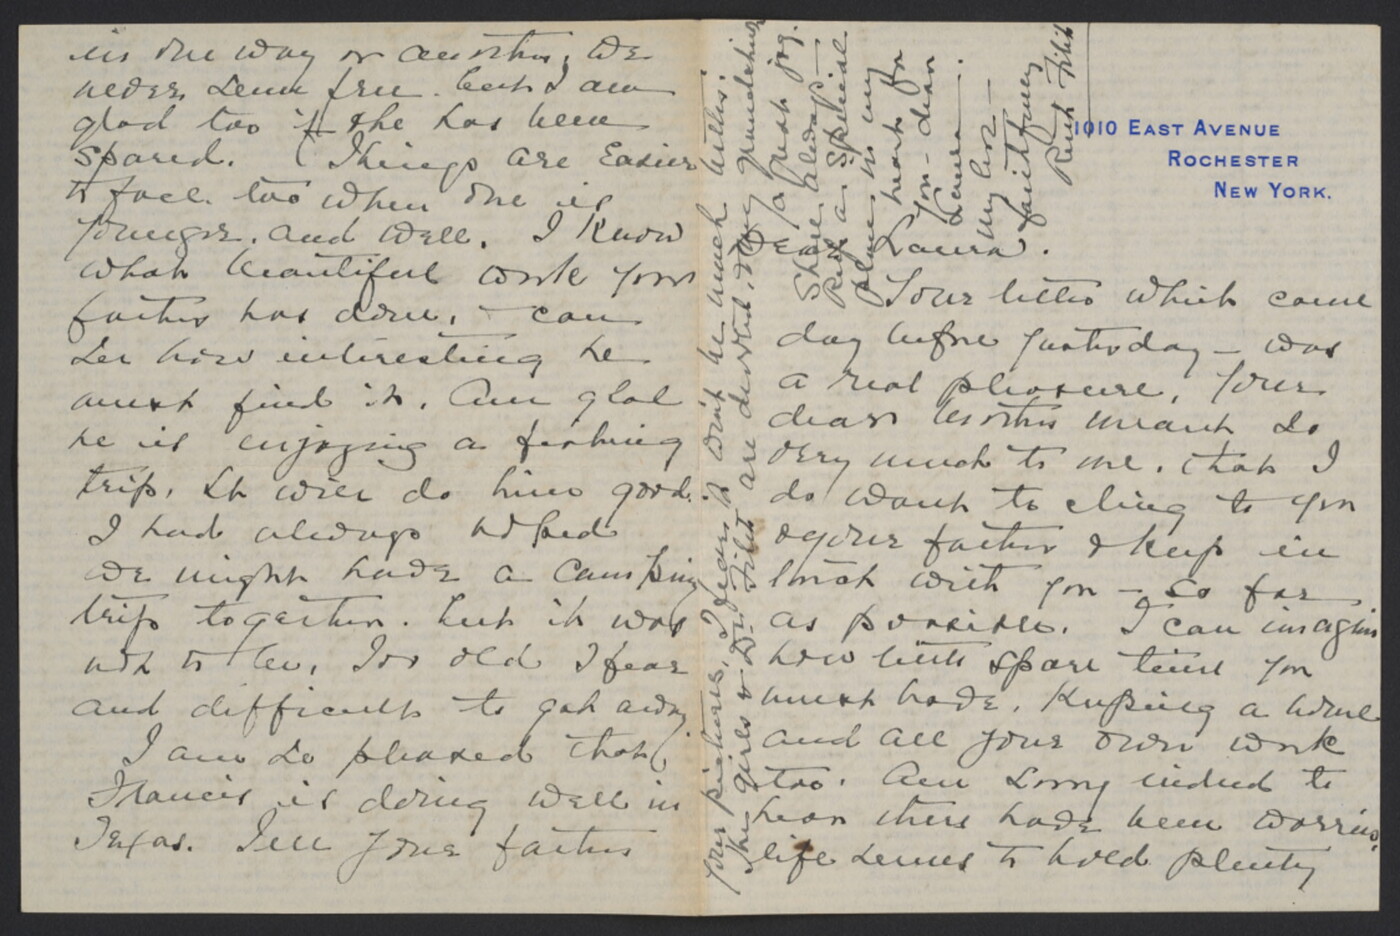 1010 EAST AVENUE
ROCHESTER
NEW YORK.
Dear Laura.
Your letter which came
day before yesterday – was
a real pleasure, Your
dear mother meant so
very much to me. that I
do want to cling to you
& your father & keep in
touch with you – so far
as possible. I can imagine
how little spare time you
must have. Keeping a home
and all your own work
too. Am sorry indeed to
hear there have been worries,
life seems to hold plenty
in one way or another, we
never seem free. but I am
glad too if she has been
spared. Things are easier
to face. too when one is
younger. and well. I know
what beautiful work your
father has done, – can
see how interesting he
must find it. Am glad
he is enjoying a fishing
trip. It will do him good.
I had always hoped
we might have a camping
trip together. but it was
not to be, Too old I fear
and difficult to get away
I am so pleased that
Francis is doing well in
Texas. Tell your father
your pictures, I fear it won't be much better.
The girls & Dr. Filib are devoted. My grandchild
a great joy.
She always –
a special
place in my
heart for
you – dear
Laura –.
My love –
faithfully